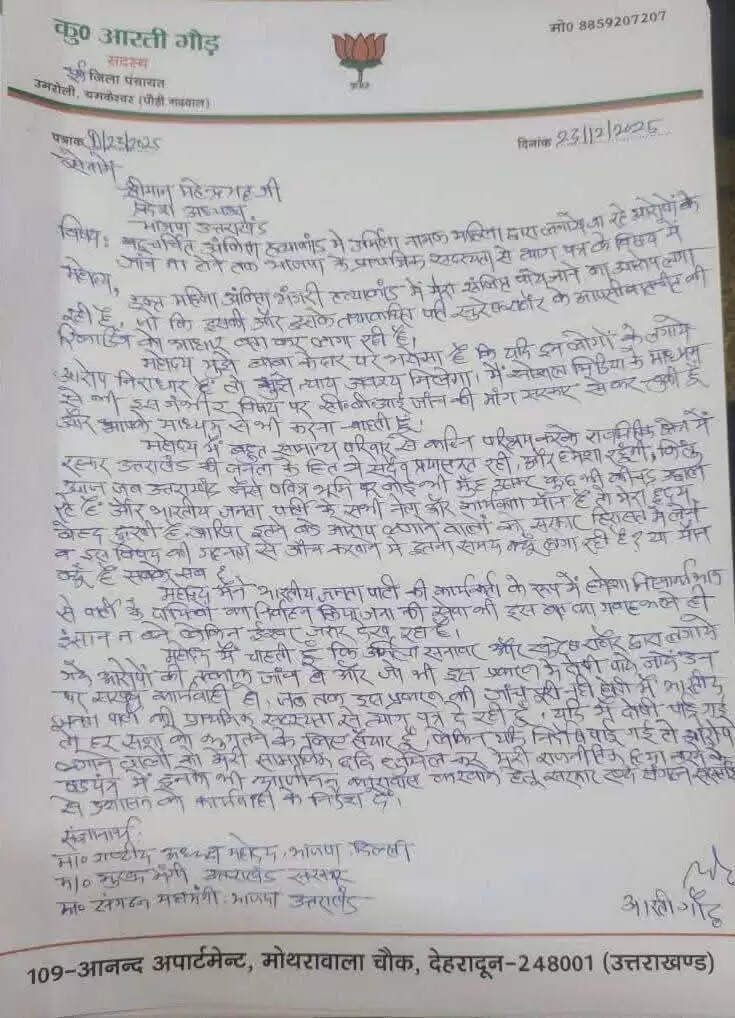 कु० आरती गौड़
मो० 8859207207
सदस्य
पूर्व जिला पंचायत
उमरोली, यमकेश्वर (पौड़ी गढ़वाल)
पत्रांक 9/23/2025
दिनांक 23/12/2025
सेवा में
श्रीमान महेन्द्र भट्ट जी
प्रदेश अध्यक्ष
भाजपा उत्तराखंड
विषय: बहुचर्चित अंकिता हत्याकांड में उर्मिला नामक महिला द्वारा लगाये जा रहे आरोपों के
जांच ना होने तक भाजपा के प्राथमिक सदस्यता से त्याग पत्र के विषय में
महोदय,
उक्त महिला अंकिता भंडारी हत्याकांड में मेरा आरोप लगा
रही है, जो कि इसकी और इसके तथाकथित पति सुरेश राठौर के आपसी बातचीत की
रिकार्डिंग को आधार बना कर लगा रही है।
महोदय मुझे बाबा केदार पर भरोसा है कि यदि इन लोगों के लगाये
आरोप निराधार हैं तो मुझे न्याय अवश्य मिलेगा। मैं सोशल मिडिया के माध्यम
से भी इस गंभीर विषय पर सी०बी०आई जांच की मांग सरकार से कर चुकी हूँ
और आपके माध्यम से भी करना चाहती हूँ।
महोदय मैं बहुत सामान्य परिवार से कठिन परिश्रम करके राजनितिक क्षेत्र में
रहकर उत्तराखंड की जनता के हित में सदैव प्रयासरत रही, और हमेशा रहूँगी, किंतु
आज जब उत्तराखंड जैसे पवित्र भूमि पर कोई भी मुँह उठाकर कुछ भी कीचड़ उछाल
रहे हैं और भारतीय जनता पार्टी के सभी नेता और कार्यकर्ता मौन है तो मेरा हृदय
बेहद दुखी है, आखिर इतने बड़े आरोप लगाने वालों को सरकार हिरासत में लेने
व इस विषय की गहनता से जाँच करवाने में इतना समय क्यूँ लगा रही है? या मौन
क्यूँ है सबके सब है
महोदय मैंने भारतीय जनता पार्टी की कार्यकर्ता के रूप में हमेशा निस्वार्थ भाव
से पार्टी के दायित्वों का निर्वहन किया, जनता की सेवा की इस बात का गवाह भले ही
इंसान न बने लेकिन ईश्वर जरूर देख रहा है।
महोदय मैं चाहती हूँ कि उर्मिला सनावर और सुरेश राठौर द्वारा लगाये
गये आरोपों की तत्काल जांच हो और जो भी इस प्रकरण में दोषी पाये जायें उन
पर सख्त कार्यवाही हो, जब तक इस प्रकरण की जाँच पूरी नही होती मैं भारतीय
जनता पार्टी की प्राथमिक सदस्यता से त्याग पत्र दे रही हूँ, यदि मैं दोषी पाई गई
तो हर सजा को भुगतने के लिए तैयार हूँ, लेकिन यदि निर्दोष पाई गई तो आरोप
लगाने वालों को मेरी सामाजिक छवि धूमिल कर मेरी राजनितिक हत्या करने के
षडयंत्र में इनके भी करवाने हेतु सरकार एवं संगठन
से प्रशासन को कार्यवाही के निर्देश दें।
संज्ञानार्थ:
मा० राष्ट्रीय अध्यक्ष महोदय, भाजपा दिल्ली
मा० मुख्य मंत्री उत्तराखंड सरकार
मा० संगठन महामंत्री, भाजपा उत्तराखंड
आरती गौड़
109-आनन्द अपार्टमेन्ट, मोथरावाला चौक, देहरादून-248001 (उत्तराखण्ड)